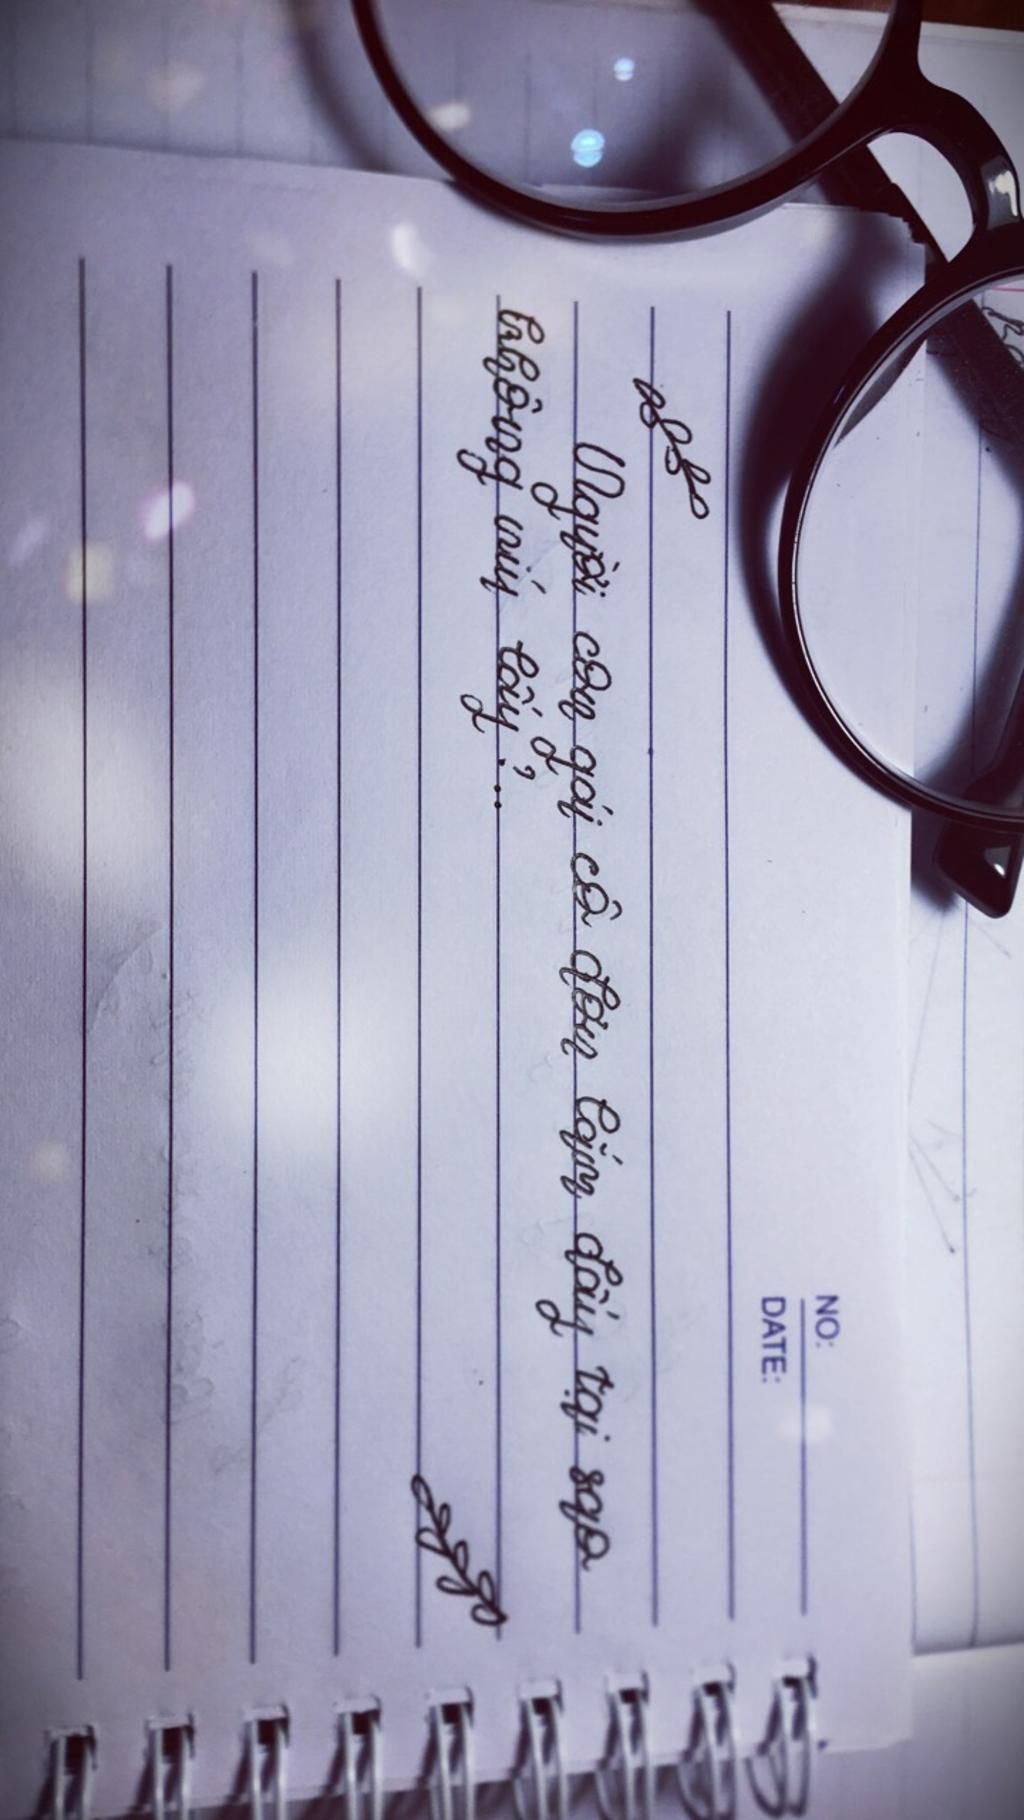 NO:
DATE:
Người con gái cô đơn lắm đấy tại sao
không níu lấy?...